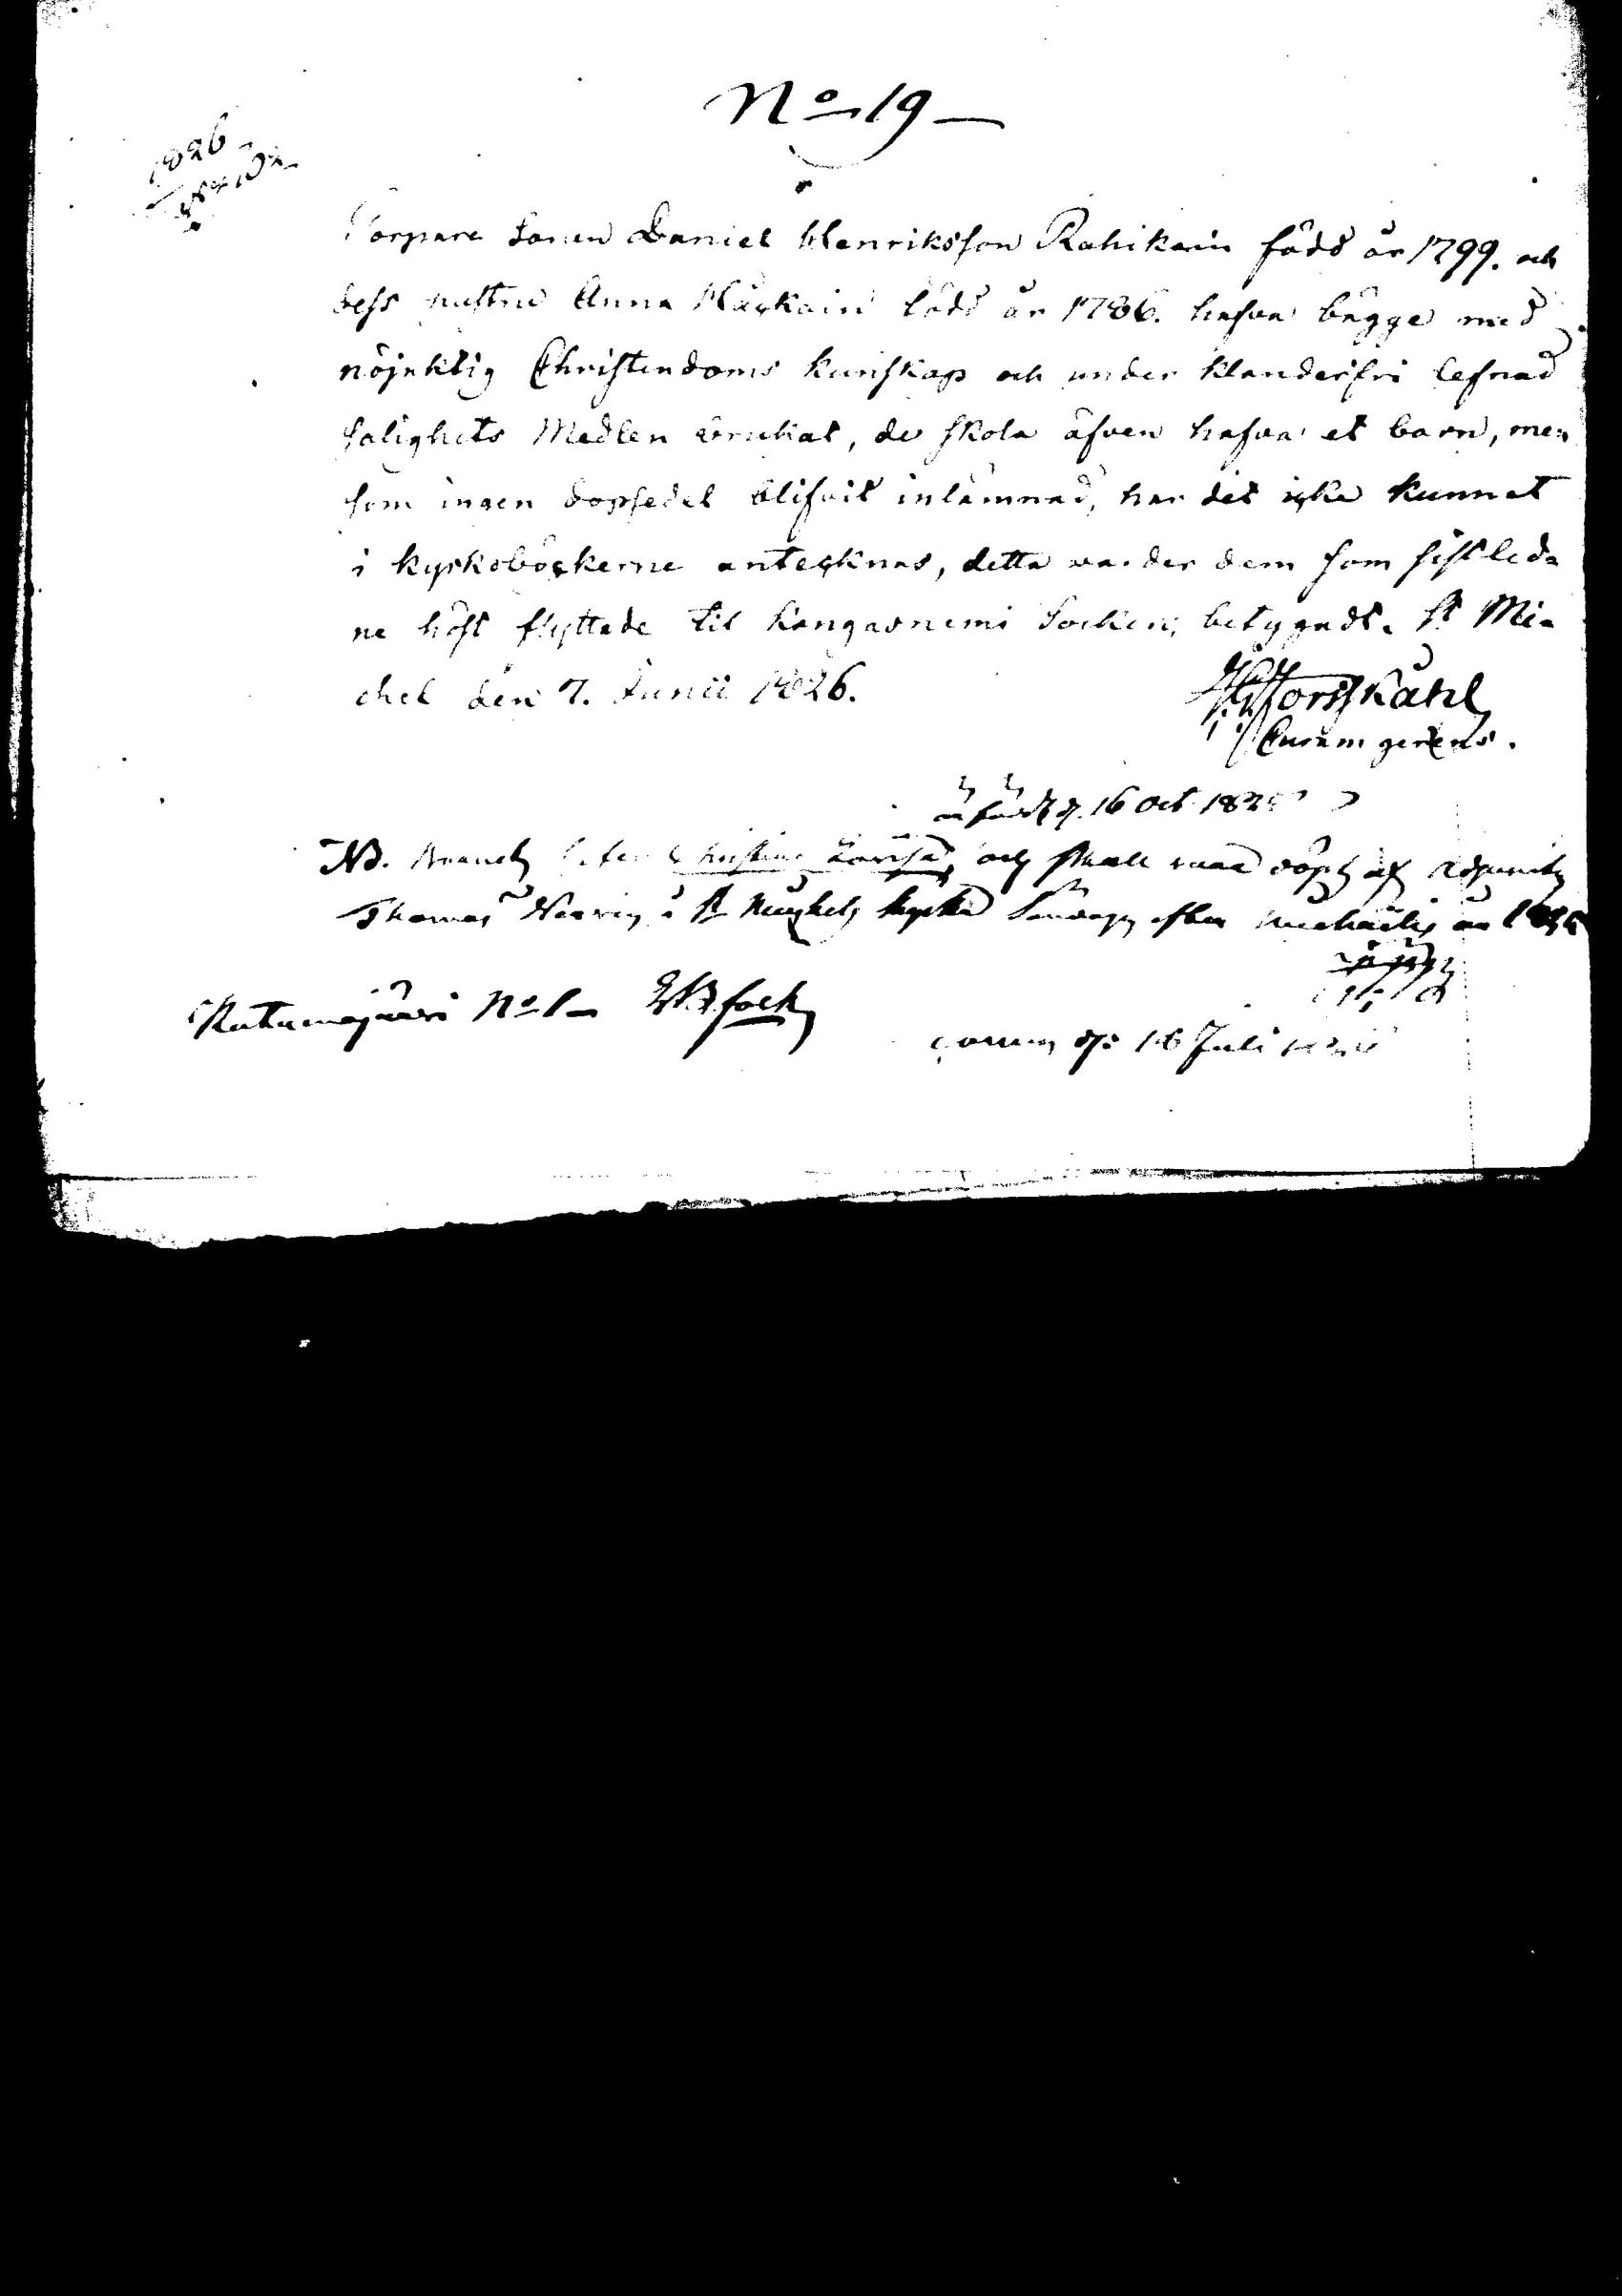 No 19
1826
Torpare Sonen Daniel Henriksson Rahikain född år 1799. och
dess hustru Anna Häckain född år 1786. hafva bägge med
nöjaktig Christendoms kunskap och under klanderfri lefnad
salighets Medlen brukat, de skola äfven hafva et barn, men
som ingen dopsedel blifvit inlämnad, har det icke kunnat
i kyrkoböckerne antecknas, detta varder dem som sistled-
ne höst flyttade til Kangasniemi Socken, betygadt. St Mi-
chel den 7. Junii 1826.
Forsskåhl
Curam gerens.
är född d. 16 Oct 182
NB. Barnet heter Christina Lovisa, och skall vara döpt af Adjuncten
Thomas i St Michels kyrka Söndagen efter Michaelis år
No 1
d: 16 Juli